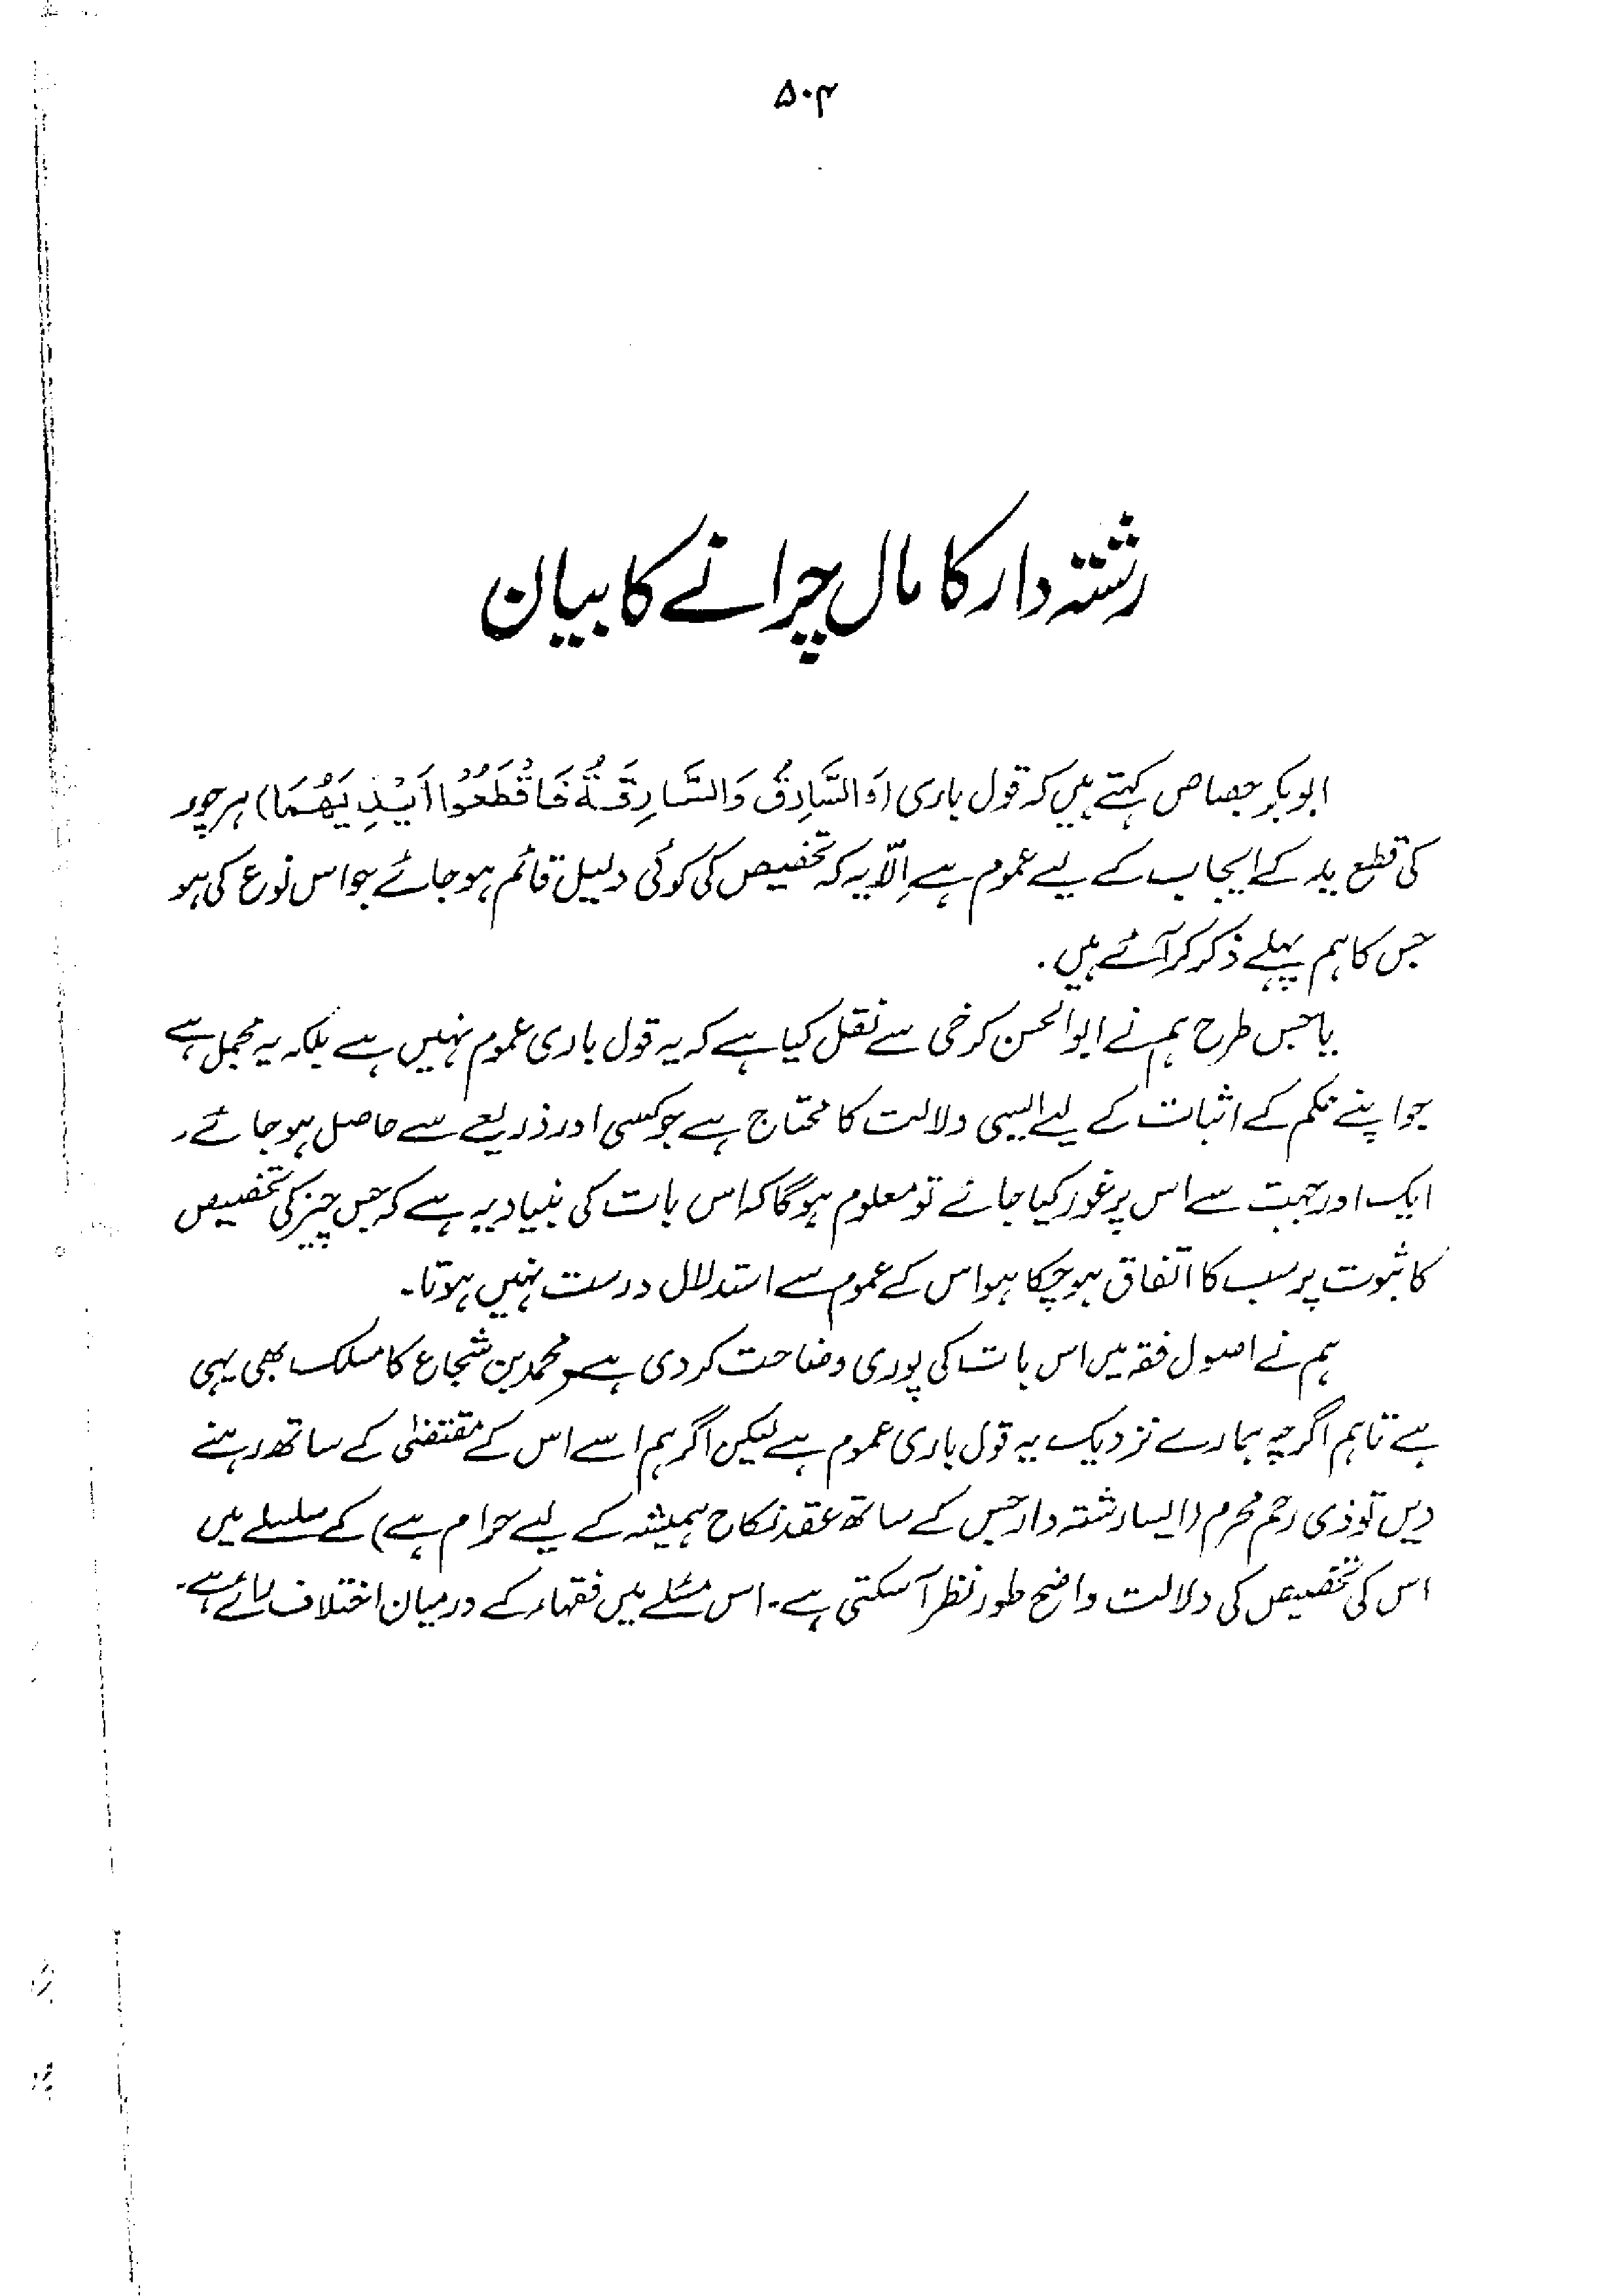 ۵۰۴
رشتہ دار کا مال چرانے کا بیان
ابوبکر جصاص کہتے ہیں کہ قول باری (وَالسَّارِقُ وَالسَّارِقَةُ فَاقْطَعُوْا اَيْدِيَهُمَا) ہر چور
کی قطع ید کے ایجاب کے لیے عموم ہے اِلّا یہ کہ تخصیص کی کوئی دلیل قائم ہو جائے جو اس نوع کی ہو
جس کا ہم پہلے ذکر کر آئے ہیں۔
یا جس طرح ہم نے ابوالحسن کرخی سے نقل کیا ہے کہ یہ قول باری عموم نہیں ہے بلکہ یہ مجمل ہے
جو اپنے حکم کے اثبات کے لیے ایسی دلالت کا محتاج ہے جو کسی اور ذریعے سے حاصل ہو جائے۔
ایک اور جہت سے اس پر غور کیا جائے تو معلوم ہوگا کہ اس بات کی بنیاد یہ ہے کہ جس چیز کی تخصیص
کا ثبوت پر سب کا اتفاق ہو چکا ہو اس کے عموم سے استدلال درست نہیں ہوتا۔
ہم نے اصول فقہ میں اس بات کی پوری وضاحت کر دی ہے۔ محمد بن شجاع کا مسلک بھی یہی
ہے تاہم اگرچہ ہمارے نزدیک یہ قول باری عموم ہے لیکن اگر ہم اسے اس کے مقتضٰی کے ساتھ رہنے
دیں تو ذی رحم محرم (ایسا رشتہ دار جس کے ساتھ عقد نکاح ہمیشہ کے لیے حرام ہے) کے سلسلے میں
اس کی تخصیص کی دلالت واضح طور نظر آ سکتی ہے۔ اس مسئلے میں فقہاء کے درمیان اختلاف رائے ہے۔